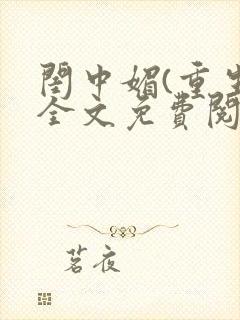 閨中媚(重生
全文免費閱
茗夜